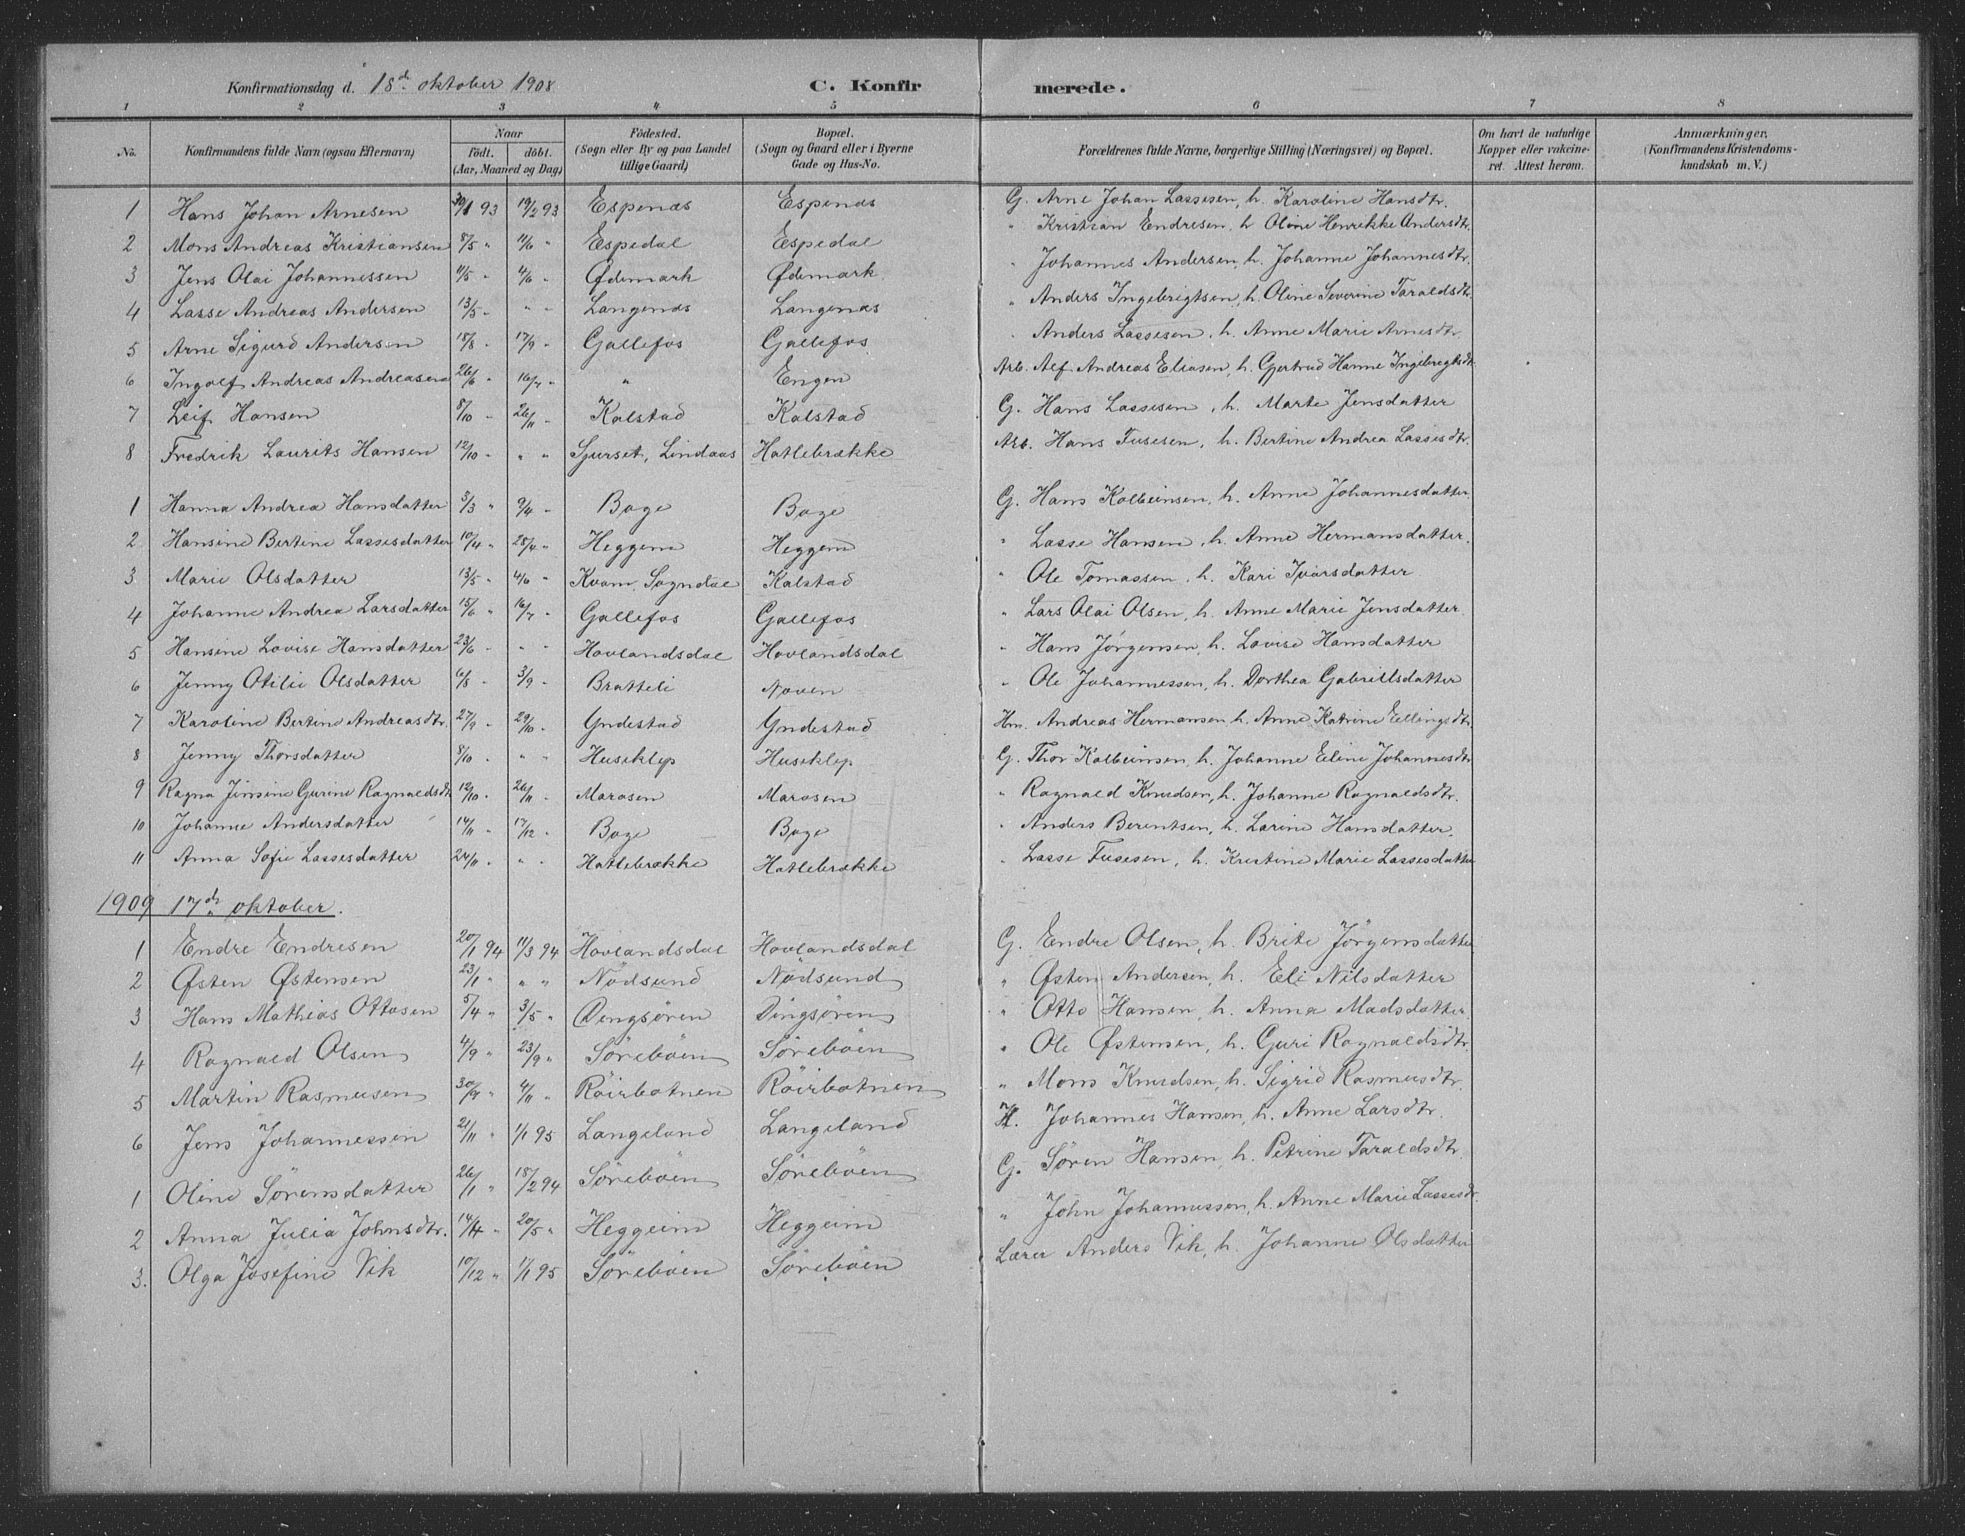 Konfirmationsdag d. 18de oktober 1908 C. Konfirmerede.
1 2 3 4 5 6 7 8
No. Konfirmandens fulde Navn (ogsaa Efternavn) Naar født. døbt. (Aar, Maaned og Dag) Fødested. (Sogn eller By og paa Landet tillige Gaard) Bopæl. (Sogn og Gaard eller i Byerne Gade og Hus-No. Forældrenes fulde Navne, borgerlige Stilling (Næringsvei) og Bopæl. Om havt de naturlige Kopper eller vakcineret. Attest herom. Anmærkninger. (Konfirmandens Kristendomskundskab m. V.)
1 Hans Johan Arnesen 30/1 93 19/2 93 Espenæs Espenæs G. Arne Johan Lassesen, h. Karoline Hansdtr.
2 Mons Andreas Kristiansen 8/5 " 11/6 " Espedal Espedal " Kristian Endresen, h. Oline Henrikke Andersdtr
3 Jens Olai Johannessen 11/5 " 4/6 " Ødemark Ødemark " Johannes Andersen, h. Johanne Johannesdtr.
4 Lasse Andreas Andersen 13/5 " " " Langenæs Langenæs " Anders Ingebrigtsen, h. Oline Severine Taraldsdtr.
5 Arne Sigurd Andersen 18/8 " 17/9 " Gallefos Gallefos " Anders Lassesen, h. Anne Marie Arnesdtr
6 Ingolf Andreas Andreasen 26/6 " 16/7 " " Engen Arb. Alf Andreas Eliasen, h. Gjertrud Hanne Ingebrigtsdtr
7 Leif Hansen 8/10 " 26/11 " Kalstad Kalstad G. Hans Lassesen, h. Marte Jensdatter
8 Fredrik Laurits Hansen 12/10 " " " Sjurset, Lindaas Hatlebrække Arb. Hans Fusesen, h. Bertine Andrea Lassesdtr.
1 Hanna Andrea Hansdatter 3/3 " 9/4 " Boge Boge G. Hans Kolbeinsen, h. Anne Johannesdatter.
2 Hansine Bertine Lassesdatter 10/4 " 28/4 " Heggem Heggem " Lasse Hansen, h. Anne Hermansdatter.
3 Marie Olsdatter 13/5 " 4/6 " Kvam, Sogndal Kalstad " Ole Tomassen, h. Kari Ivarsdatter
4 Johanne Andrea Larsdatter 15/6 " 16/7 " Gallefos Gallefos " Lars Olai Olsen, h. Anne Marie Jensdatter.
5 Hansine Lovise Hansdatter 23/6 " " " Hovlandsdal Hovlandsdal " Hans Jørgensen, h. Lovise Hansdatter
6 Jenny Otilie Olsdatter 6/8 " 3/9 " Bratteli Noven " Ole Johannessen, h. Dorthea Gabrielsdatter
7 Karoline Bertine Andreasdtr. 27/9 " 29/10 " Yndestad Yndestad Hm. Andreas Hermansen, h. Anne Katrine Ellingsdtr.
8 Jenny Thorsdatter 8/10 " " " Huseklep Huseklep G. Thor Kolbeinsen, h. Johanne Eline Johannesdtr
9 Ragna Jensine Gurine Ragnaldsdtr 12/10 " 26/11 " Marøsen Marøsen " Ragnald Knudsen, h. Johanne Ragnaldsdtr.
10 Johanne Andersdatter 14/11 " 17/12 " Boge Boge " Anders Berentsen, h. Larine Hansdatter.
11 Anna Sofie Lassesdatter 24/11 " " " Hatlebrække Hatlebrække " Lasse Fusesen, h. Kristine Marie Lassesdatter
1909 17de oktober.
1 Endre Endresen 20/1 94 11/3 94 Hovlandsdal Hovlandsdal G. Endre Olsen, h. Brite Jörgensdatter
2 Østen Østensen 23/1 " " " Nödsund Nödsund " Østen Andersen, h. Eli Nilsdatter
3 Hans Mathias Ottosen 5/4 " 3/5 " Dingsören Dingsören " Otto Hansen, h. Anna Madsdatter.
4 Ragnald Olsen 4/9 " 23/9 " Söreböen Söreböen " Ole Østensen, h. Guri Ragnaldsdtr.
5 Martin Rasmusen 30/9 " 4/11 " Röirbotnen Röirbotnen " Mons Knudsen, h. Sigrid Rasmusdtr.
6 Jens Johannessen 21/11 " 1/1 95 Langeland Langeland H. Johannes Hansen, h. Anne Larsdtr
1 Oline Sörensdatter 26/1 " 18/2 94 Söreböen Söreböen G. Sören Hansen, h. Petrine Taraldsdtr.
2 Anna Julia Johnsdtr. 14/4 " 20/5 " Heggeim Heggeim " John Johannessen, h. Anne Marie Lassesdtr
3. Olga Josefine Vik 10/12 " 1/1 95 Söreböen Söreböen Lærer Anders Vik, h. Johanne Olsdatter